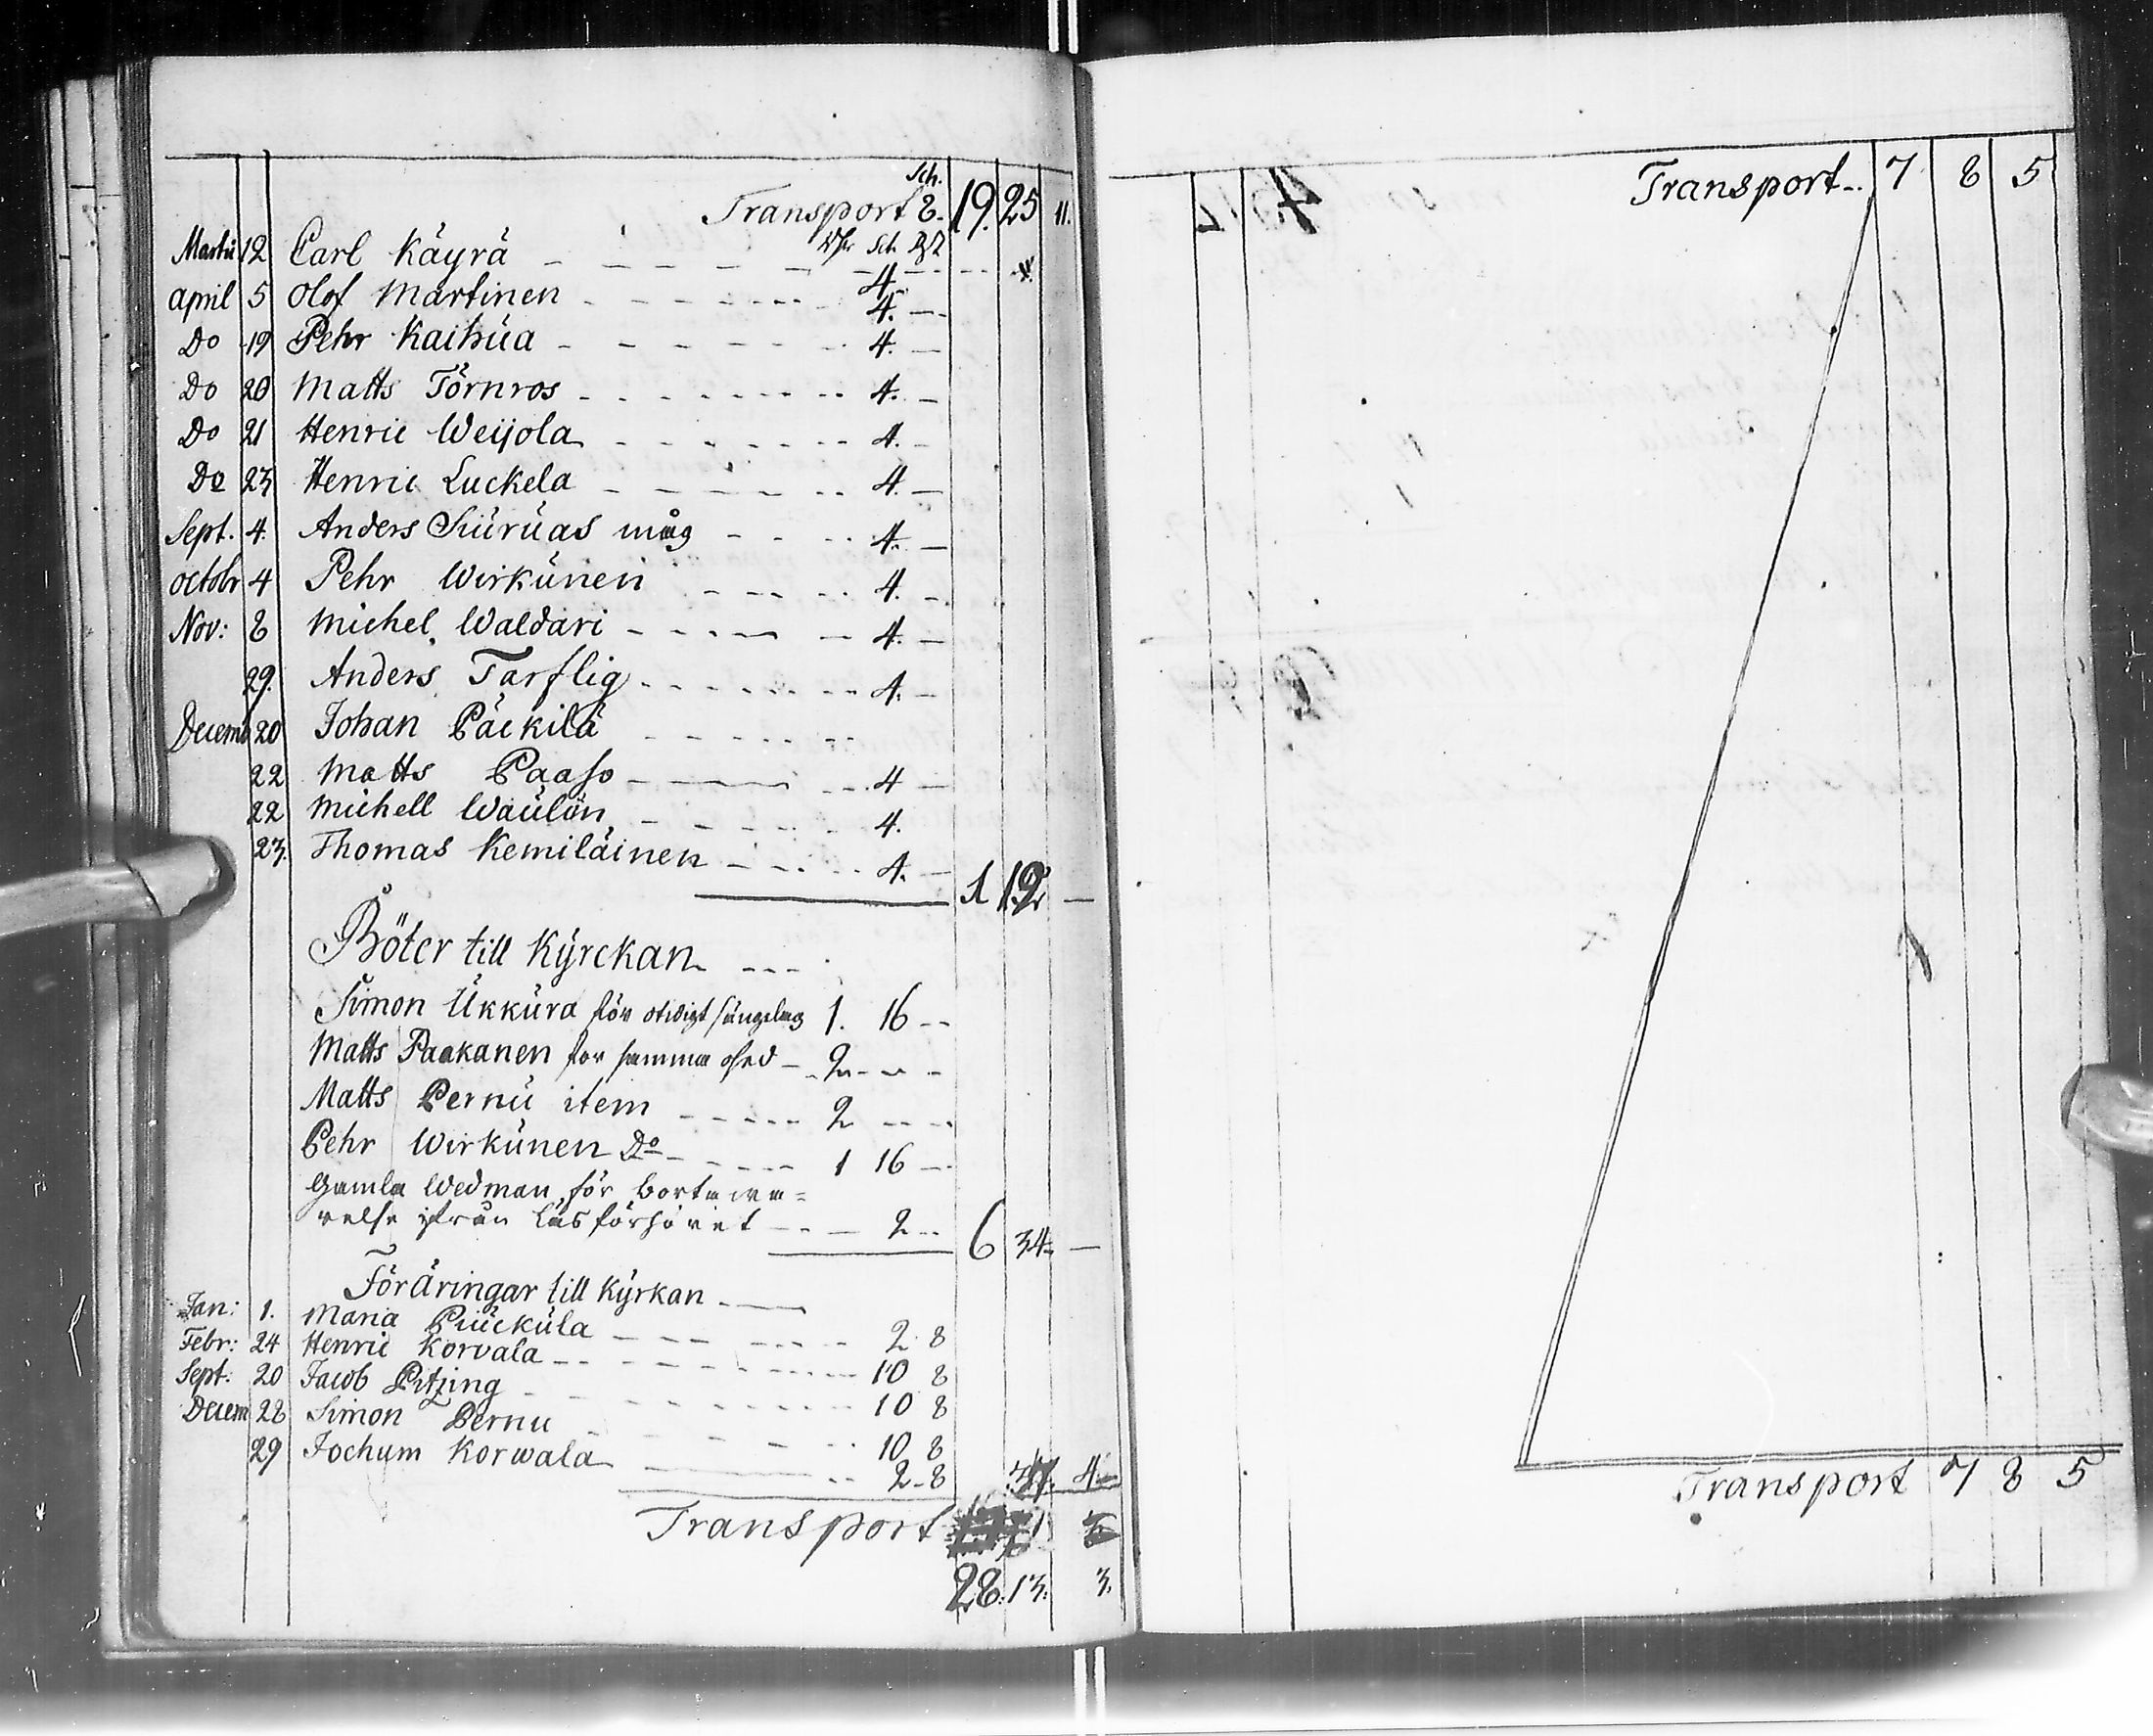 Sch.
Transport 19. 25 11.
Sch
Martii 12 Carl Käyrä 4.
april 5 Olof Martinen 4.
Do 19 Pehr Kaihüa 4.
Do 20 Matts Törnros 4.
Do 21 Henric Weijola 4.
Do 23 Henric Luckela 4.
Sept. 4. Anders Siurüas måg 4.
octobr 4 Pehr Wirkünen 4.
Nov: 8 Michel Waldari 4.
29. Anders Tarflig 4.
Decemb 20 Johan Päckilä
22 Matts Paaso 4
22 Michell Waülön 4.
23. Thomas Kemiläinen 4.
1 12
Böter till Kÿrckan
Simon Ükküra för otidigt sängelag 1. 16
Matts Paakanen för samma osed 2
Matts Pernü item 2
Pehr Wirkünen Do 1 16
Gamla Wedman för bortawa=
relse ifrån läsförhöret 2
6 34
Föräringar till Kÿrkan
Jan: 1. Maria Püückula 2 8
Febr: 24 Henric Korvala 10 8
Sept: 20 Jacob Pitzing 10 8
Decem 28 Simon Pernu 10 8
29 Jochum Korwala 2 8
37. 4
Transport
28. 13. 3.
Transport 7 8 5
Transport 7 8 5